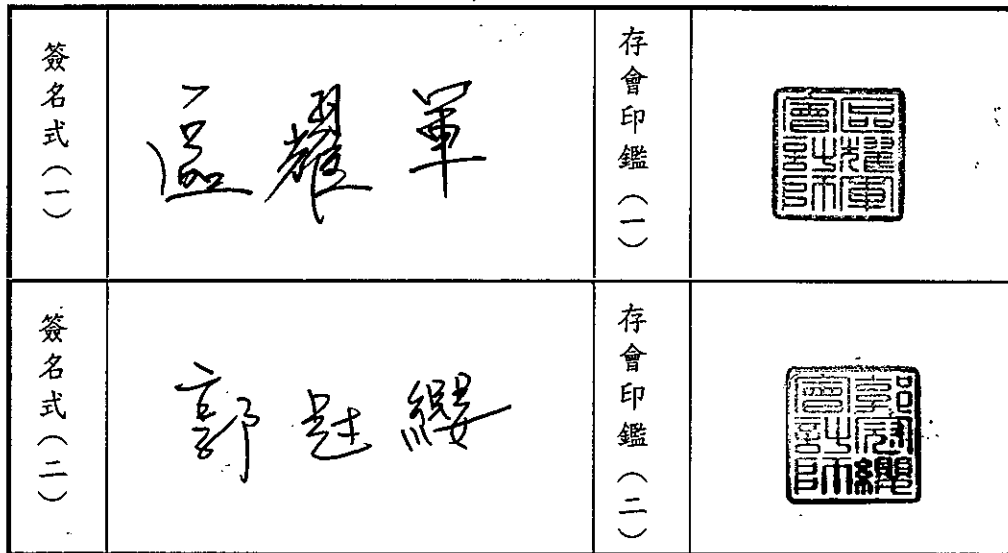 簽名式(一)
區耀軍
存會印鑑(一)
區耀軍
會計師
簽名式(二)
郭冠纓
存會印鑑(二)
郭冠纓
會計師